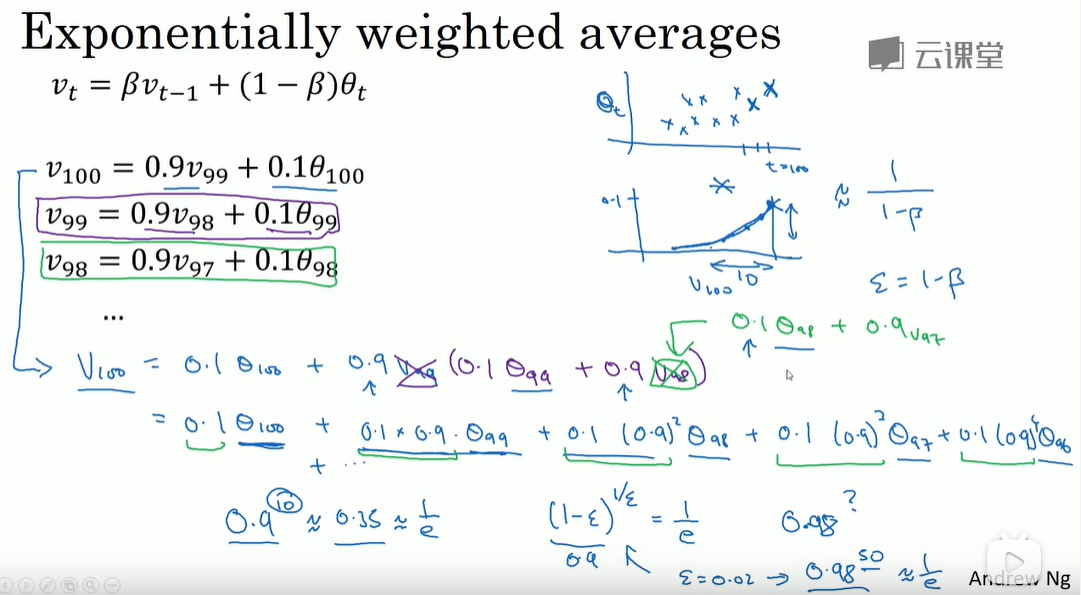 Exponentially weighted averages
云课堂
v_t = βv_{t−1} + (1 − β)θ_t
θ_t
t=100
v_100 = 0.9v_99 + 0.1θ_100
v_99 = 0.9v_98 + 0.1θ_99
v_98 = 0.9v_97 + 0.1θ_98
...
0.1
10
V_100
≈ 1/(1-β)
ε = 1-β
0.1 θ_98 + 0.9 v_97
V_100 = 0.1 θ_100 + 0.9 v_99 (0.1 θ_99 + 0.9 v_98)
= 0.1 θ_100 + 0.1 × 0.9 · θ_99 + 0.1 (0.9)^2 θ_98 + 0.1 (0.9)^3 θ_97 + 0.1 (0.9)^4 θ_96
+ ...
0.9^10 ≈ 0.35 ≈ 1/e
(1-ε)^{1/ε} = 1/e
0.9
0.98^?
ε=0.02 → 0.98^50 ≈ 1/e
Andrew Ng